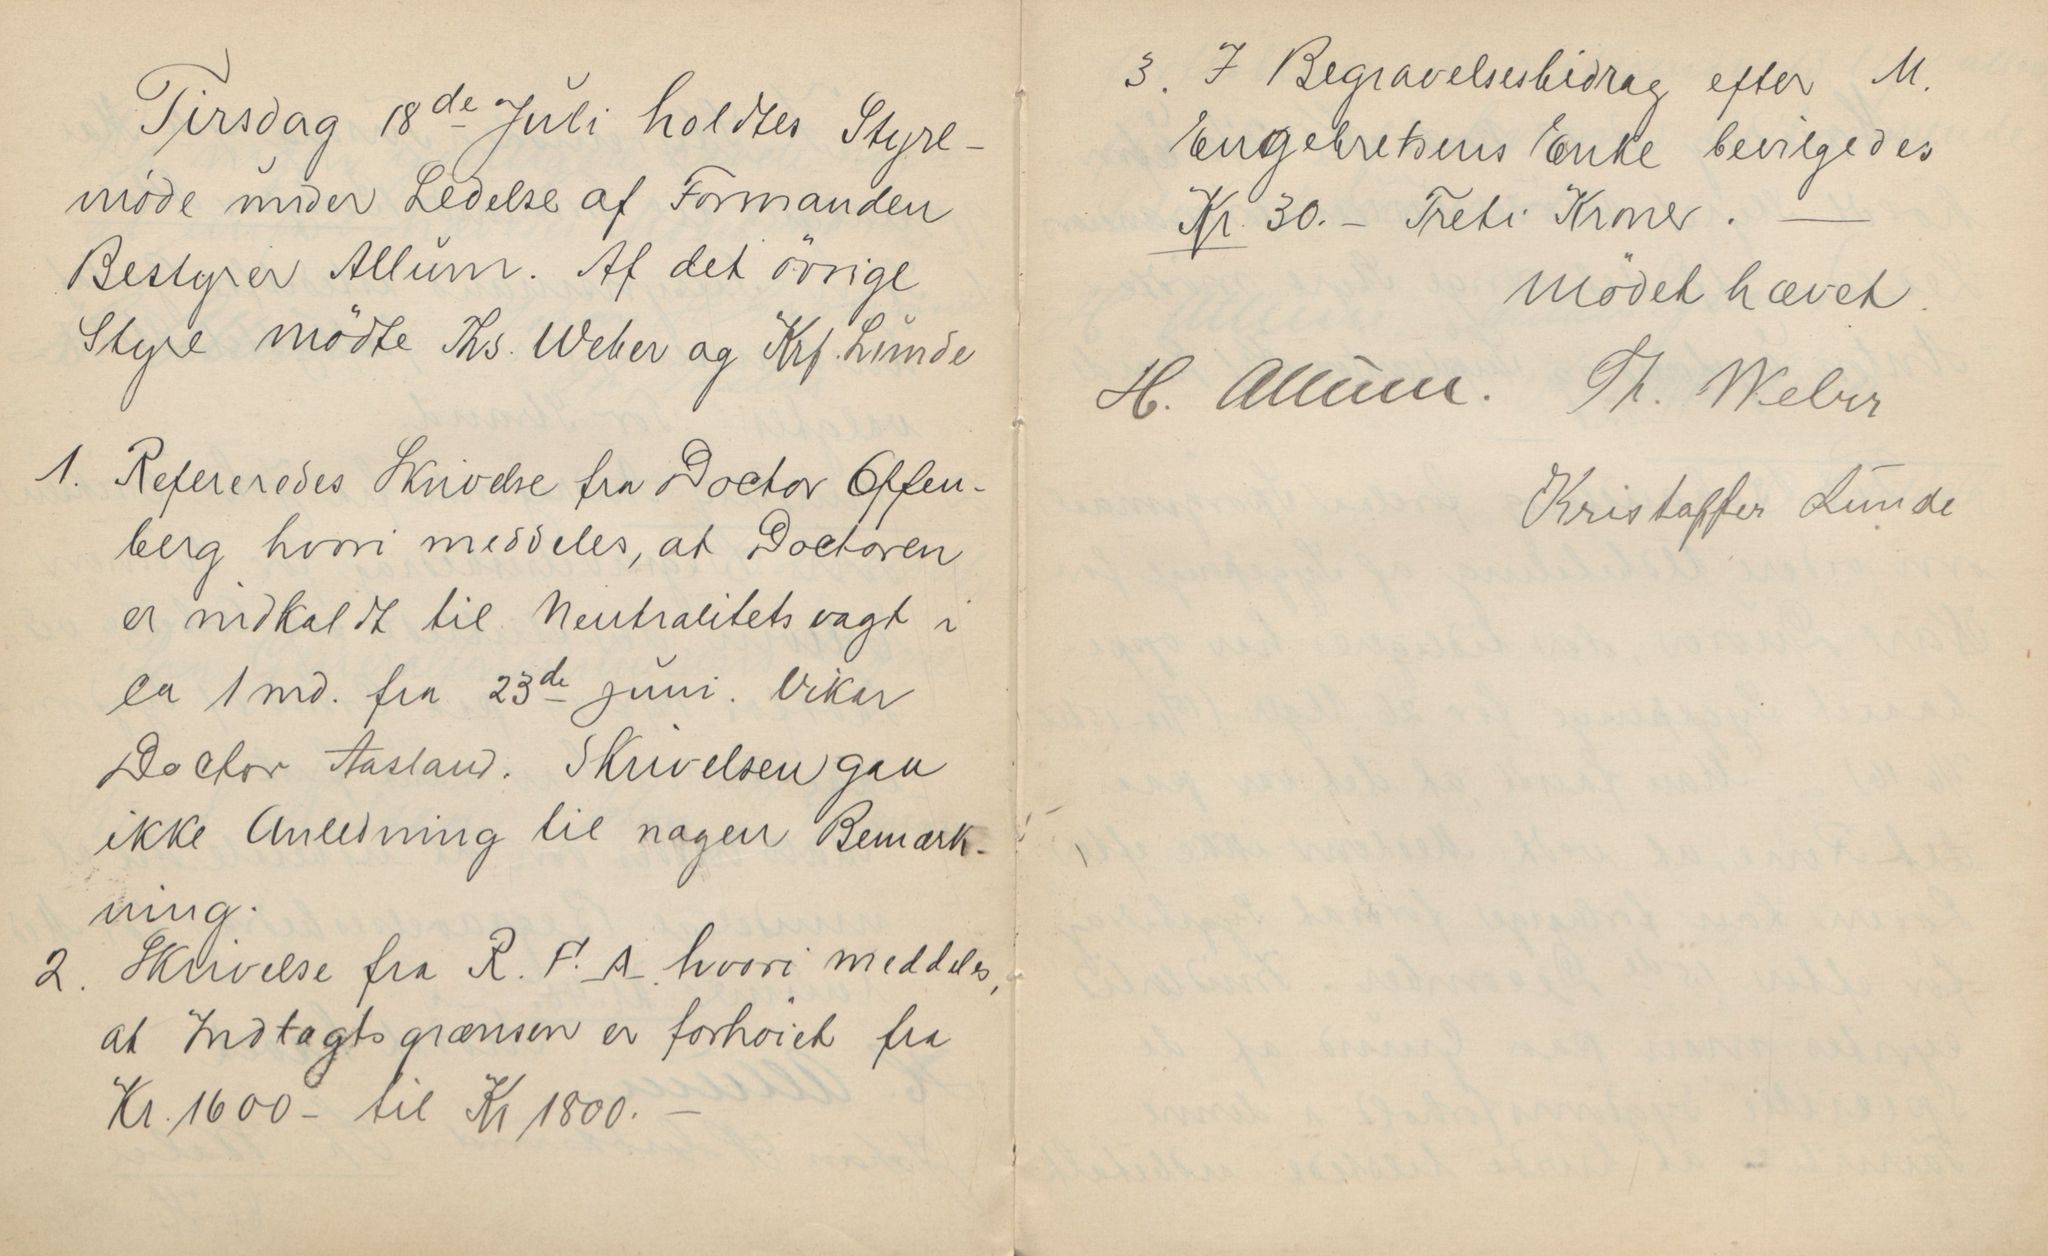 Tirsdag 18de Juli holdtes Styre-
møde under Ledelse af Formanden
Bestyrer Allum. Af det øvrige
Styre mødte Ths. Weber og Krf. Lunde
1. Refereredes Skrivelse fra Doctor Offen-
berg hvori meddeles, at Doctoren
er indkaldt til Neutralitetsvagt i
ca 1 md. fra 23de juni. Vikar
Doctor Aasland. Skrivelsen gaa
ikke Anledning til nogen Bemærk-
ning.
2. Skrivelse fra R. F. A. hvori meddeles,
at Indtægtsgrænsen er forhøiet fra
Kr. 1600- til Kr 1800.-
3. I Begravelsesbidrag efter M.
Engebretsens Enke bevilgedes
Kr. 30.- Treti Kroner. —
Mødet hævet.
H. Allum. Th. Weber
Kristoffer Lunde